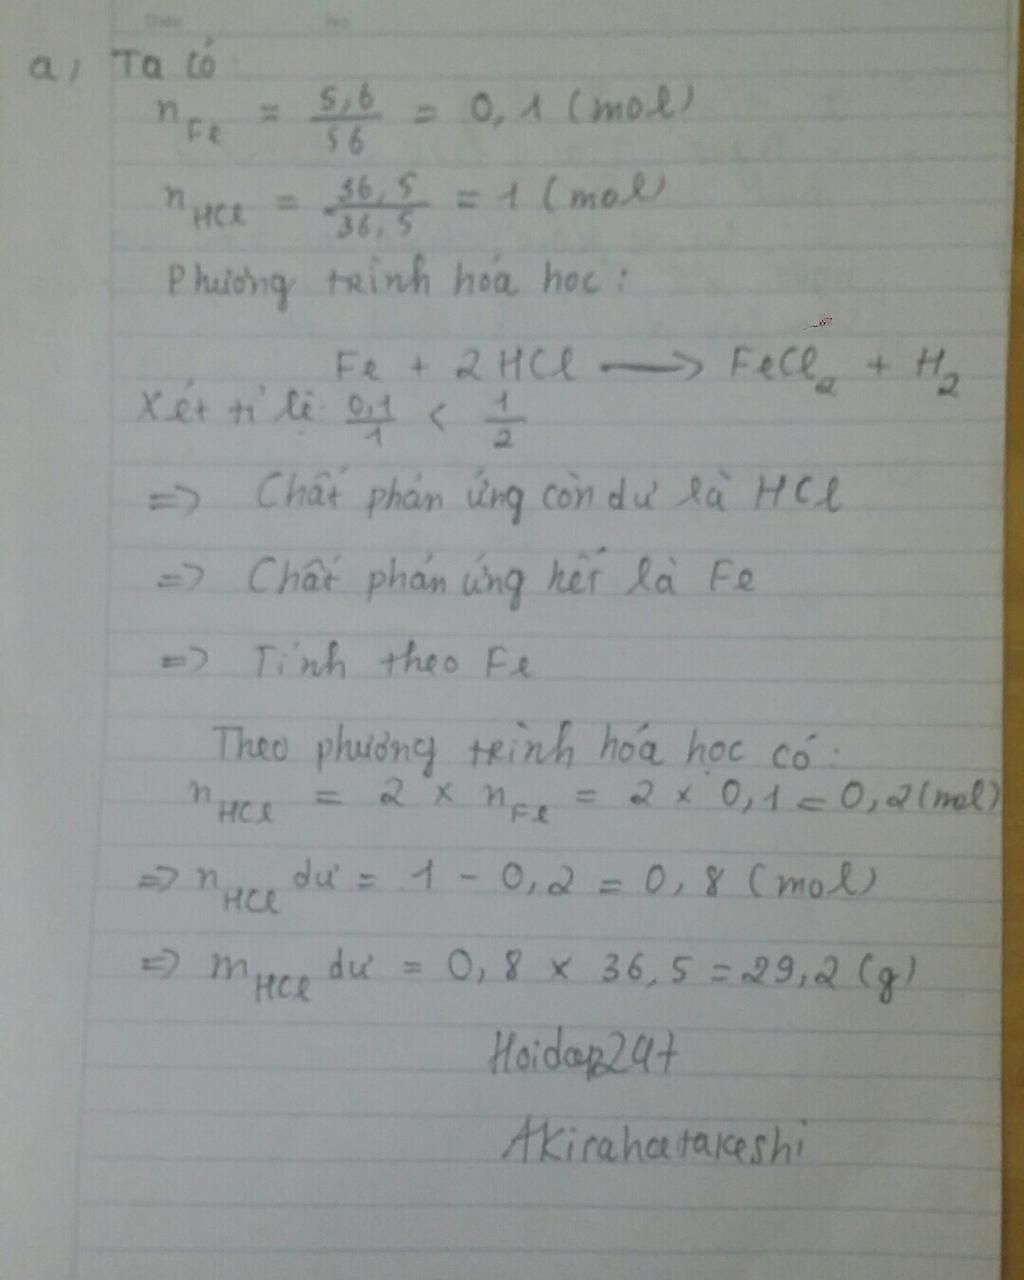 Date No
a, Ta có
n Fe = 5,6/56 = 0,1 (mol)
n HCl = 36,5/36,5 = 1 (mol)
Phương trình hóa học:
Fe + 2 HCl → FeCl2 + H2
Xét tỉ lệ: 0,1/1 < 1/2
=> Chất phản ứng còn dư là HCl
=> Chất phản ứng hết là Fe
=> Tính theo Fe
Theo phương trình hóa học có:
n HCl = 2 × n Fe = 2 × 0,1 = 0,2 (mol)
=> n HCl dư = 1 - 0,2 = 0,8 (mol)
=> m HCl dư = 0,8 × 36,5 = 29,2 (g)
Hoidap247
Akirahatakeshi